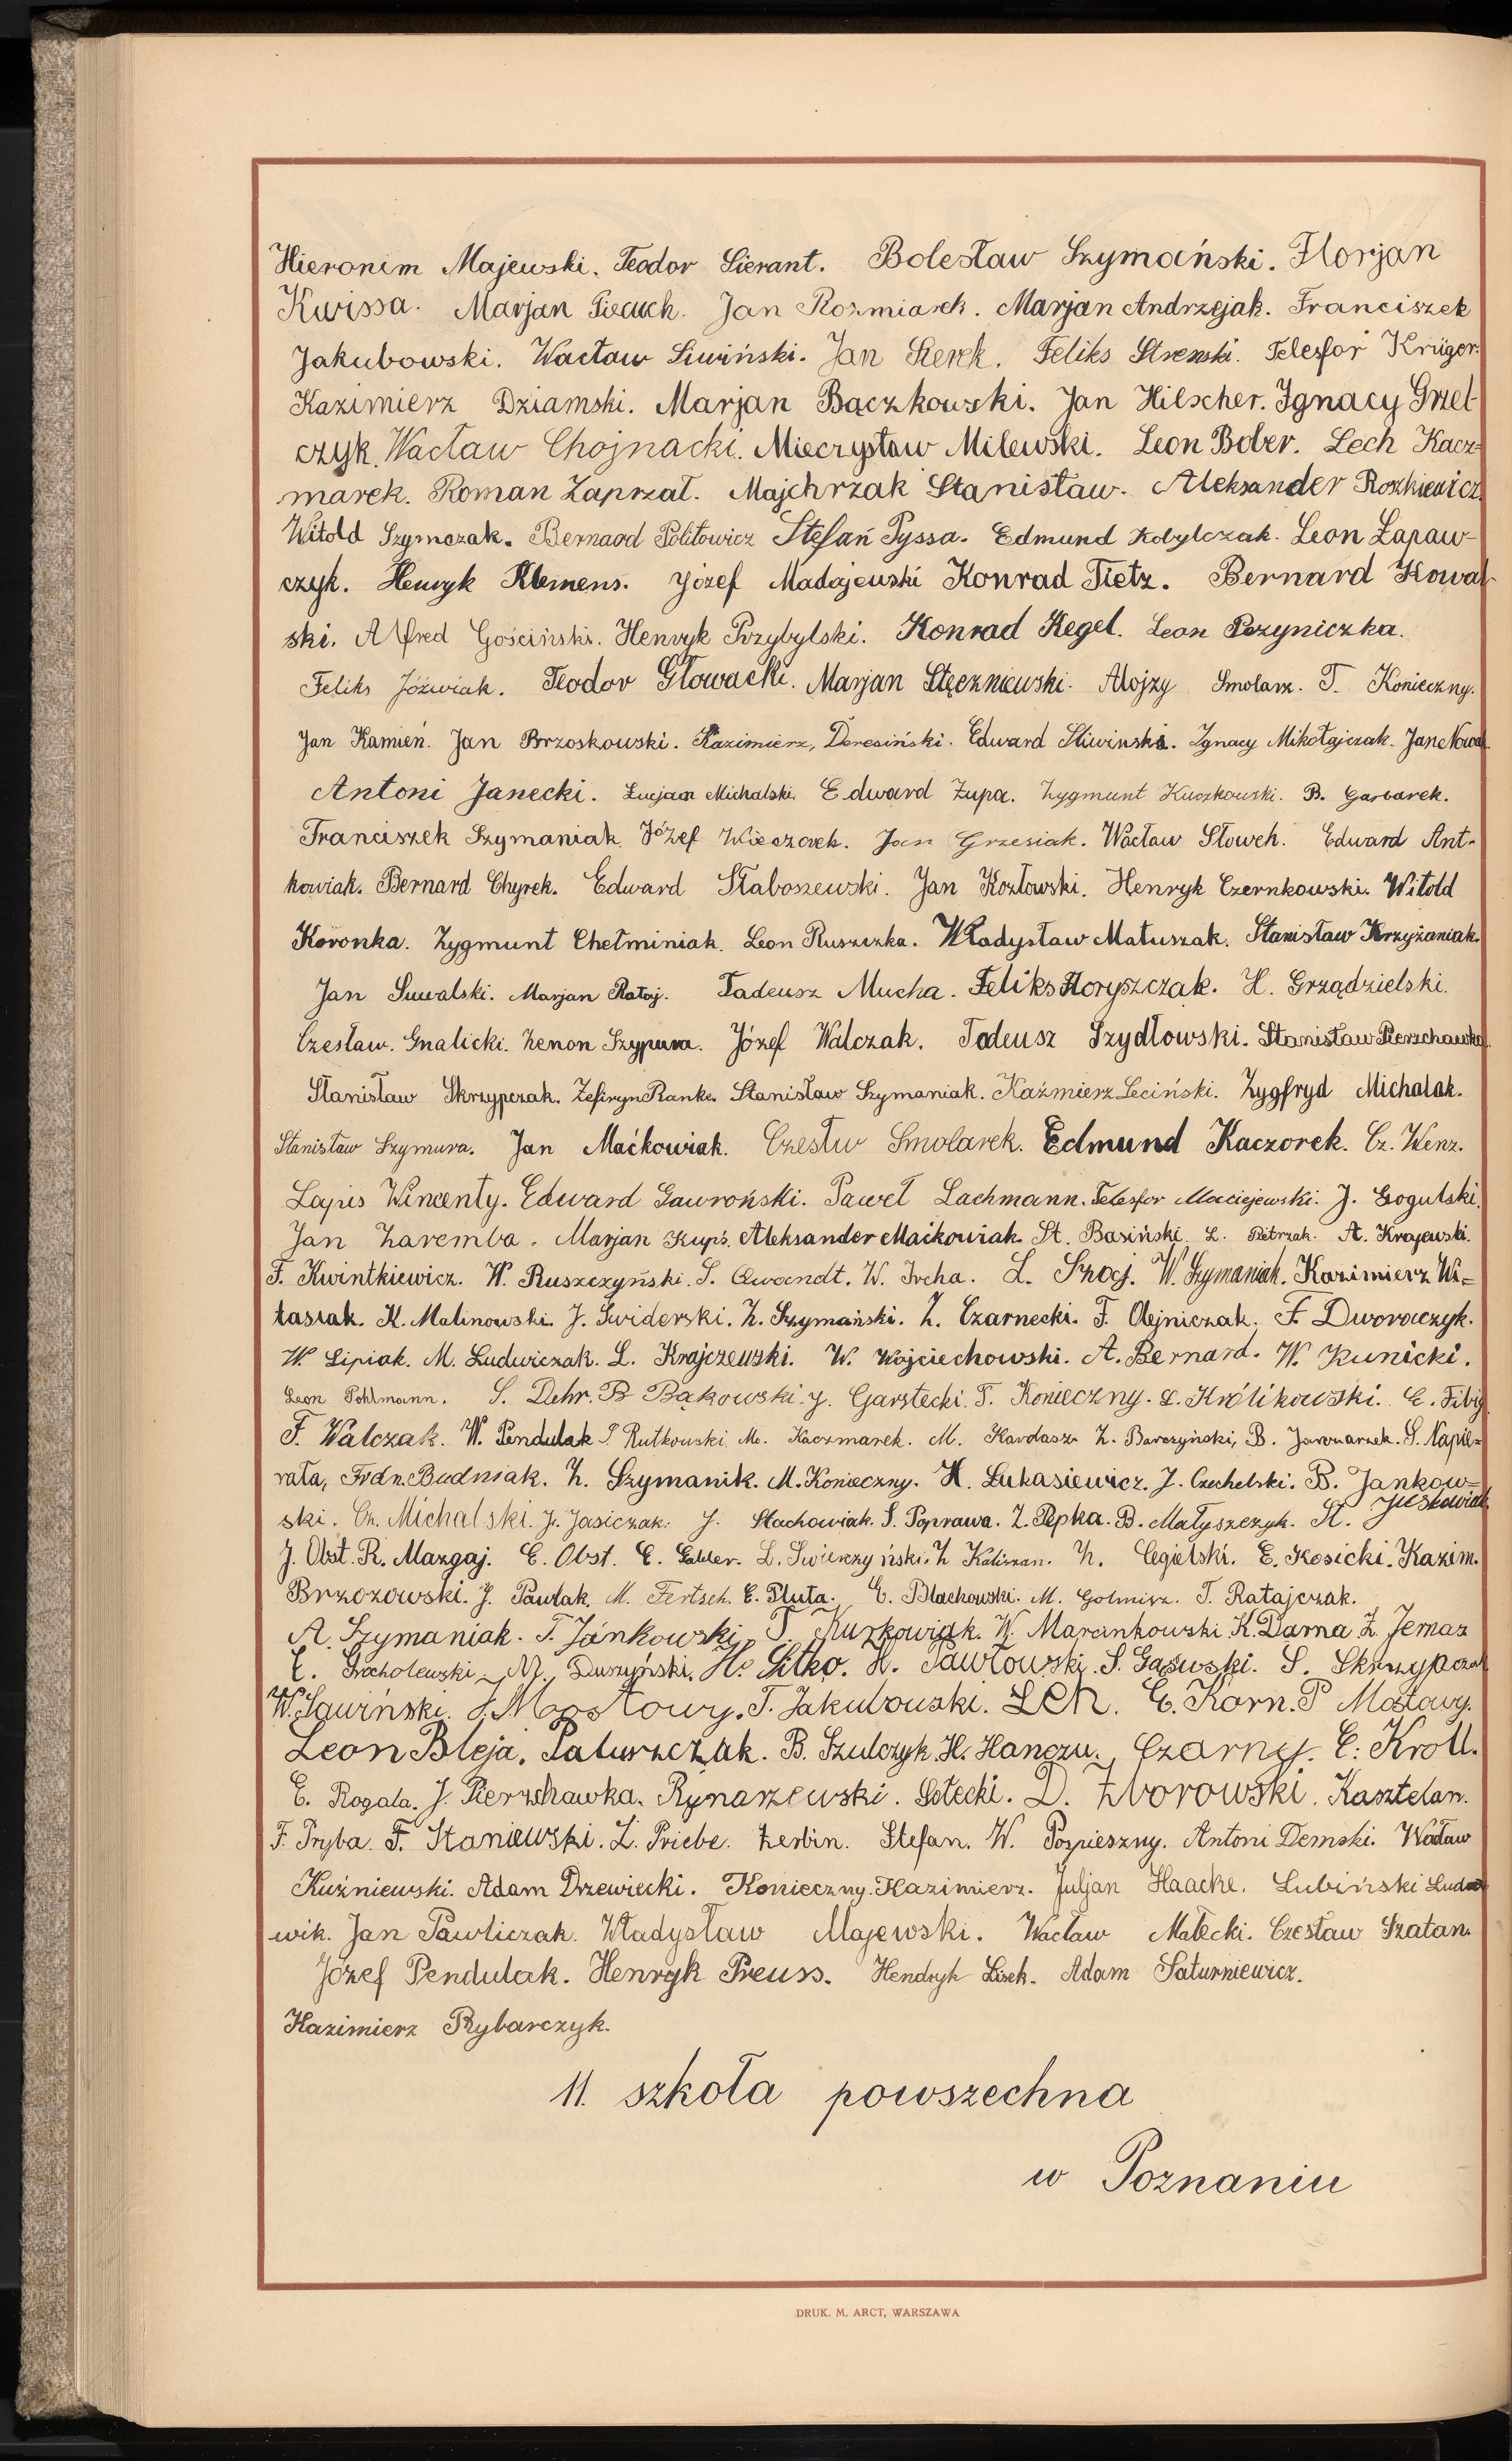 Hieronim Majewski. Teodor Sierant. Bolesław Szymański. Florjan
Kwissa. Marjan Piecuch. Jan Rozmiarek. Marjan Andrzejak. Franciszek
Jakubowski. Wacław Siwiński. Jan Sierek. Feliks Stremski. Telesfor Krüger.
Kazimierz Dziamski. Marjan Bączkowski. Jan Hilscher. Ignacy Grzel-
czyk. Wacław Chojnacki. Mieczysław Milewski. Leon Bober. Lech Kacz=
marek. Roman Zaprzał. Majchrzak Stanisław. Aleksander Roszkiewicz.
Witold Szymczak. Bernard Politowicz Stefań Pyssa. Edmund Kobylczak. Leon Łapaw-
czyk. Henryk Klemens. Józef Madajewski Konrad Tietz. Bernard Kowal-
ski. Alfred Gościński. Henryk Przybylski. Konrad Kegel. Leon Pszyniczka.
Feliks Jóźwiak. Teodor Głowacki. Marjan Stęczniewski. Alojzy Smolarz. T. Konieczny.
Jan Kamień. Jan Brzoskowski. Kazimierz, Deresiński. Edward Śliwiński. Ignacy Mikołajczak. Jan Nowak
Antoni Janecki. Lucjan Michalski. Edward Zupa. Zygmunt Kuczkowski. B. Garbarek.
Franciszek Szymaniak. Józef Wieczorek. Jan Grzesiak. Wacław Słowek. Edward Ant-
kowiak. Bernard Chyrek. Edward Słaboszewski. Jan Kozłowski. Henryk Czernkowski. Witold
Koronka. Zygmunt Chełminiak. Leon Ruszczka. Władysław Matuszak. Stanisław Krzyżaniak.
Jan Suwalski. Marjan Rataj. Tadeusz Mucha. Feliks Floryszczak. H. Grządzielski.
Czesław. Gnalicki. Zenon Szypura. Józef Walczak. Tadeusz Szydłowski. Stanisław Pierzchawka
Stanisław Skrzypczak. Zefiryn Ranke. Stanisław Szymaniak. Kaźmierz Leciński. Zygfryd Michalak.
Stanisław Szymura. Jan Maćkowiak. Czesłw Smolarek. Edmund Kaczorek. Cz. Wenz.
Łapis Wincenty. Edward Gawroński. Paweł Lachmann. Telesfor Maciejewski. J. Gogulski.
Jan Zaremba. Marjan Kupś. Aleksander Maćkowiak. St. Basiński. L. Pietrzak. A. Krajewski.
F. Kwintkiewicz. W. Ruszczyński. S. Qwandt. W. Ircha. L. Szpaj. W. Szymaniak. Kazimierz Wi=
tasiak. K. Malinowski. J. Świderski. Z. Szymański. Z. Czarnecki. F. Olejniczak. F. Dworaczyk.
W. Lipiak. M. Ludwiczak. L. Krajczewski. W. Wojciechowski. A. Bernard. W. Kunicki.
Leon Pohlmann. S. Dehr. B Bąkowski. J. Garstecki. T. Konieczny. L. Królikowski. E. Fibig
F. Walczak. W. Pendulak I. Rutkowski. M. Kaczmarek. M. Kardasz. Z. Barczyński, B. S. Napie=
rała, Frdn. Budniak. Z. Szymanik. M. Konieczny. H. Łukasiewicz. J. Czechelski. B. Jankow=
ski. Cz. Michalski. J. Jasiczak. J. Stachowiak. S. Poprawa. Z. Pepka. B. Małyszczyk. St. Juskowiak
J. Obst. R. Mazgaj. E. Obst. E. Gabler. L. Świerczyński. Z Kaliszan. Z. Cegielski. E. Kosicki. Kazim.
Brzozowski. J. Pawlak. M. Fertsch. E. Pluta. E. Blachowski. M. Golmisz. T. Ratajczak.
A. Szymaniak. T. Jánkowski. T. Kurkowiak. W. Marcinkowski. K. Darna Z. Jemaz
E. Grocholewski. M. Duszyński. H. Sitko. H. Pawłowski. S. Gąsowski. S. Skrzypczak
W. Sawiński. J. Mostowy. T. Jakubowski. Lch. E. Korn. P Mostowy.
Leon Bleja. Paluszczak. B. Szulczyk. H. Hanczu. Czarny. E. Kroll.
E. Rogala. J. Pierzchawka. Rynarzewski. Sotecki. D. Zborowski. Kasztelan.
F. Pryba. F. Staniewski. L. Priebe. Zerbin. Stefan. W. Pospieszny. Antoni Demski. Wacław
Kuźniewski. Adam Drzewiecki. Konieczny. Kazimierz. Juljan Haacke. Lubiński Lud
wik. Jan Pawliczak. Władysław Majewski. Wacław Małecki. Czesław Szatan.
Józef Pendulak. Henryk Preuss. Hendryk Lisek. Adam Saturniewicz.
Kazimierz Rybarczyk.
11. szkoła powszechna
w Poznaniu
DRUK. M. ARCT, WARSZAWA